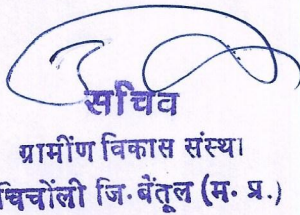 सचिव
ग्रामींण विकास संस्था
चिचोंली जि. बैंतूल (म. प्र.)